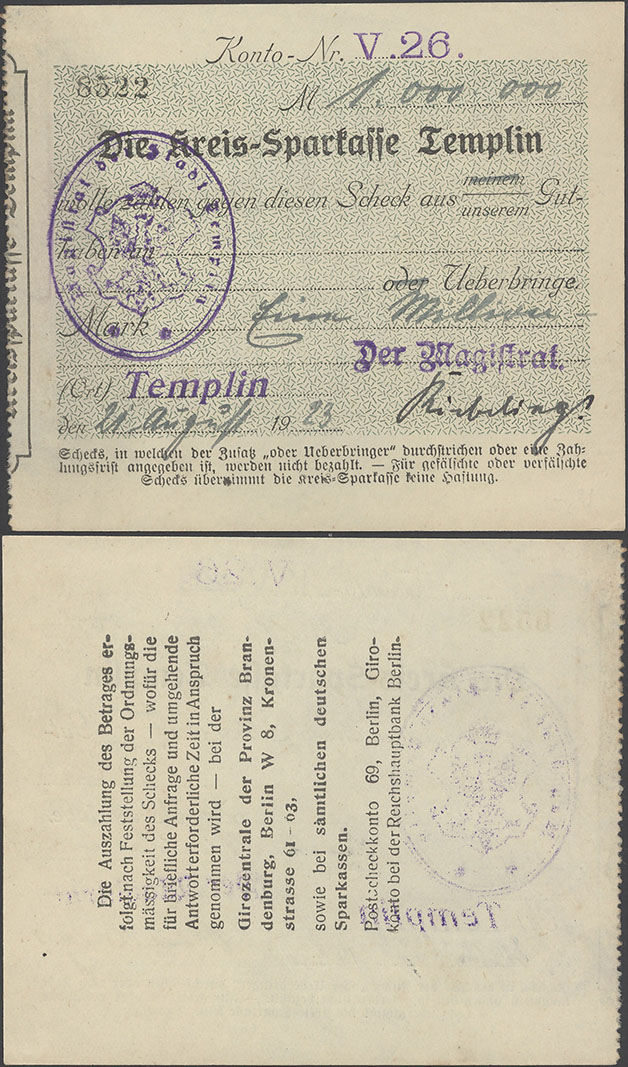 Konto-Nr. V.26.
8522
M 1.000 000
Die Kreis-Sparkasse Templin
wolle zahlen gegen diesen Scheck aus meinem
unserem Gut-
haben an
oder Ueberbringe.
Mark Eine Million -
Der Magistrat.
(Ort) Templin
den 21 August 1923
Magistrat der Stadt Templin
Schecks, in welchen der Zusatz „oder Ueberbringer“ durchstrichen oder eine Zah-
lungsfrist angegeben ist, werden nicht bezahlt. — Für gefälschte oder verfälschte
Schecks übernimmt die Kreis-Sparkasse keine Haftung.
V.26
8522
Die Auszahlung des Betrages er-
folgt nach Feststellung der Ordnungs-
mässigkeit des Schecks — wofür die
für briefliche Anfrage und umgehende
Antwort erforderliche Zeit in Anspruch
genommen wird — bei der
Girozentrale der Provinz Bran-
denburg, Berlin W 8, Kronen-
strasse 61-63,
sowie bei sämtlichen deutschen
Sparkassen.
Postscheckkonto 69, Berlin, Giro-
konto bei der Reichshauptbank Berlin.
Templin